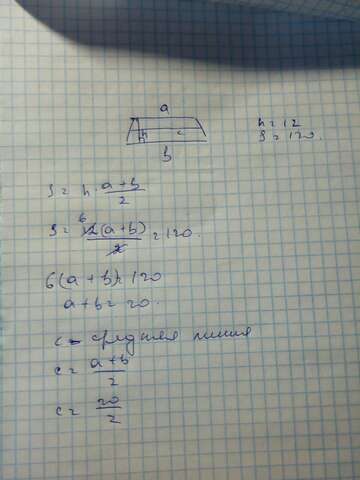 a
h c
b
h = 12
S = 120.
S = h · \frac{a+b}{2}
S = \frac{12(a+b)}{2} = 120.
6
6(a+b) = 120
a+b = 20.
c - средняя линия
c = \frac{a+b}{2}
c = \frac{20}{2}